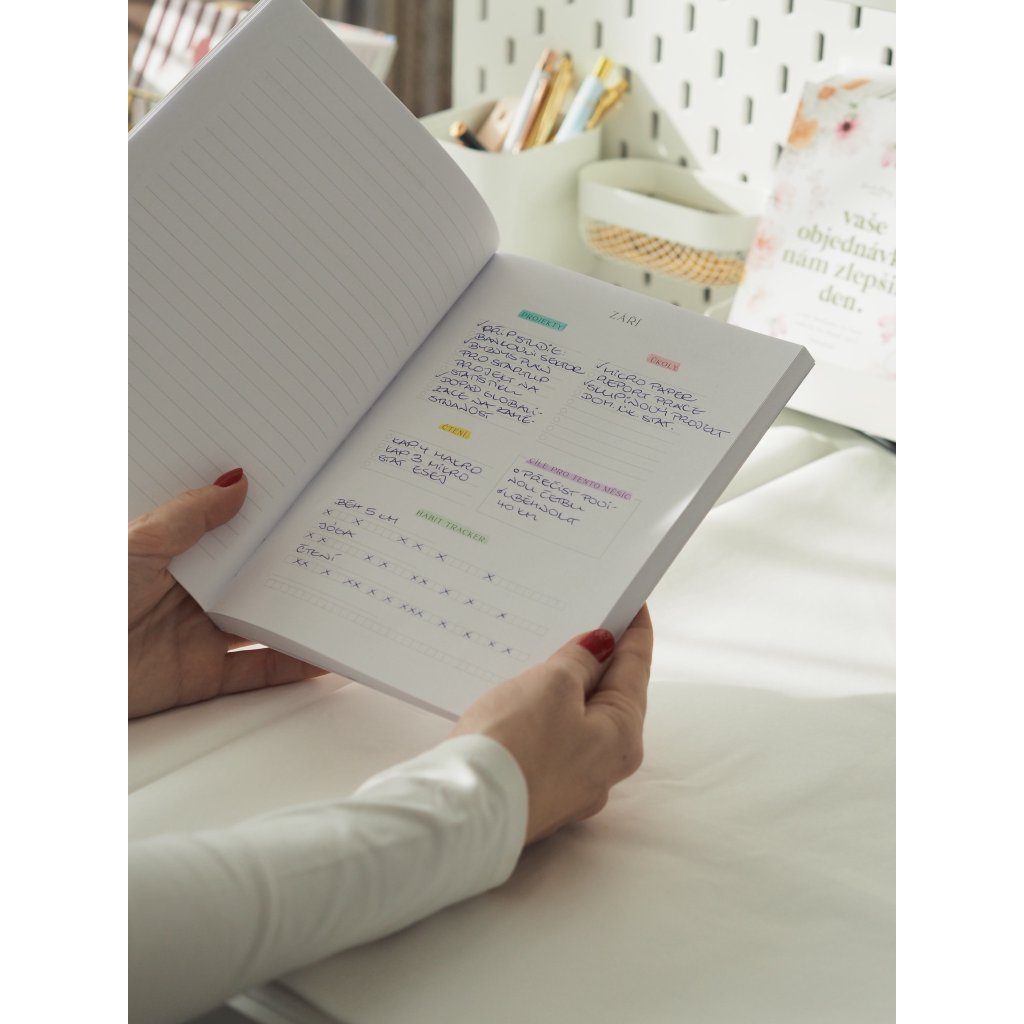 ZÁŘÍ
PROJEKTY
✓PŘÍP. STUDIE:
BANKOVNÍ SEKTOR
✓BYZNYS PLÁN
PRO STARTUP
PROJEKT NA
STATISTIKU
✓DOPAD GLOBALI-
ZACE NA ZAMĚ-
STNANOST
ÚKOLY
✓MICRO PAPER
REPORT PRÁCE
✓SKUPINOVÝ PROJEKT
DOM. ÚK. STAT.
ČTENÍ
KAP 4 MAKRO
KAP 3 MIKRO
STAT ESEJ
CÍLE PRO TENTO MĚSÍC
PŘEČÍST POVI-
NOU ČETBU
✓UBĚHNOUT
40 KM
HABIT TRACKER:
BĚH 5 KM
x x x x x x
JÓGA
x x x x x x x x x
ČTENÍ
xx x xx x x xxx x x x x
vaše
objednávk
nám zlepšil
den.